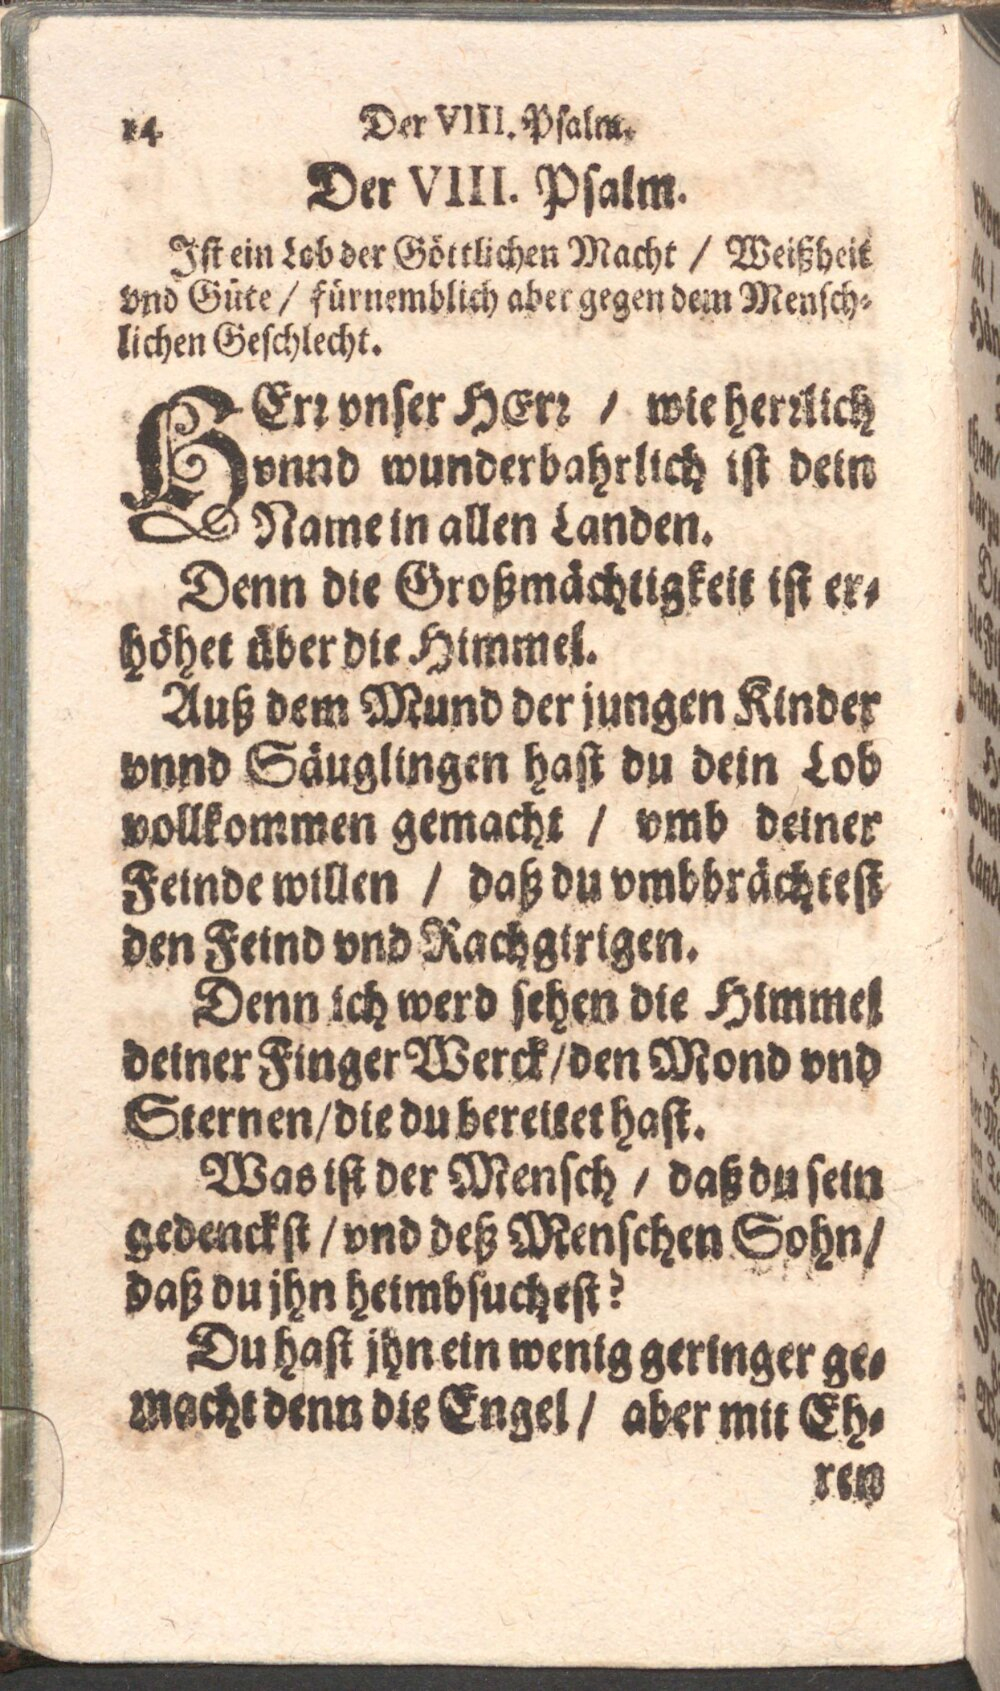 14 Der VIII. Psalm.
Der VIII. Psalm.
Ist ein Lob der Göttlichen Macht / Weißheit
vnd Güte / fürnemblich aber gegen dem Mensch-
lichen Geschlecht.
HErr vnser HErr / wie herrlich
vnnd wunderbahrlich ist dein
Name in allen Landen.
Denn die Großmächtigkeit ist er-
höhet über die Himmel.
Auß dem Mund der jungen Kinder
vnnd Säuglingen hast du dein Lob
vollkommen gemacht / vmb deiner
Feinde willen / daß du vmbbrächtest
den Feind vnd Rachgirigen.
Denn ich werd sehen die Himmel
deiner Finger Werck / den Mond vnd
Sternen / die du bereitet hast.
Was ist der Mensch / daß du sein
gedenckst / vnd deß Menschen Sohn /
daß du jhn heimbsuchest?
Du hast jhn ein wenig geringer ge-
macht denn die Engel / aber mit Eh-
ren